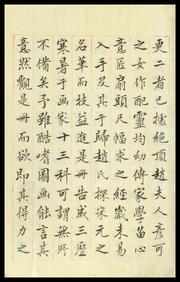 更二者已擅絕頂趙夫人彥可
之女作配靈均幼傳家學留心
意匠扇頭尺幅求之經歲未易
入手及其于歸趙氏探宋元之
名筆而技益進是冊告成三歷
寒暑于画家十三科可謂無所
不備矣予雖酷嗜圖画能言其
意然觀是冊而欲即其得力之